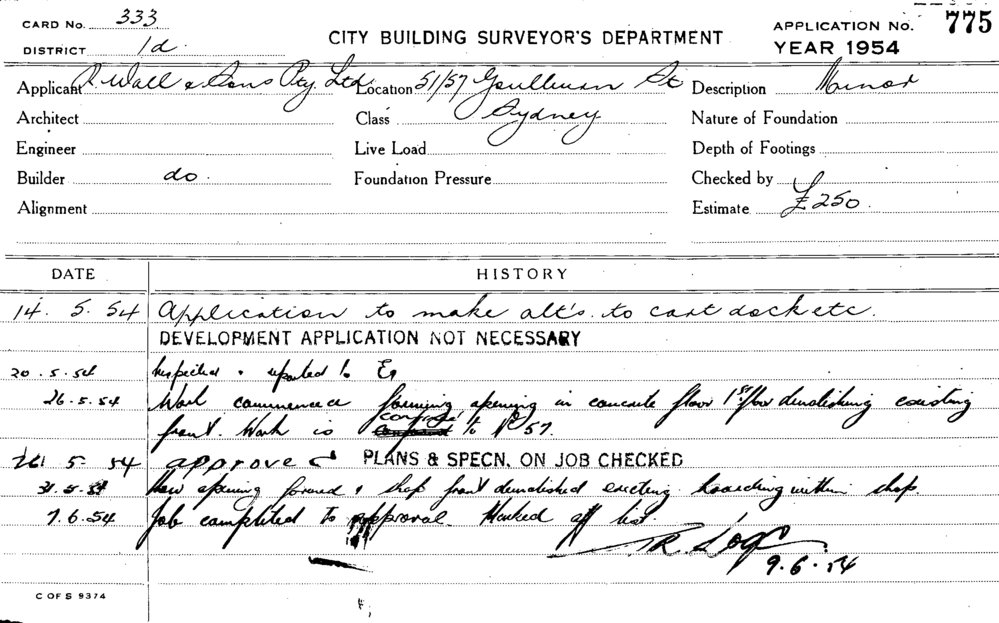 CARD No. 333
DISTRICT 1d
CITY BUILDING SURVEYOR'S DEPARTMENT
APPLICATION No. 775
YEAR 1954
Applicant R. Wall & Sons Pty. Ltd. Location 51/57 Goulburn St Description Minor
Architect Class Sydney Nature of Foundation
Engineer Live Load Depth of Footings
Builder do. Foundation Pressure Checked by
Alignment Estimate £250.
DATE HISTORY
14. 5. 54 Application to make alt's. to cart dock etc.
DEVELOPMENT APPLICATION NOT NECESSARY
20.5.54 Inspected & reported to
26.5.54 Work commenced forming opening in concrete floor 1st floor demolishing existing
front. Work is confined to 57.
5. 54 approved PLANS & SPECN. ON JOB CHECKED
31.5.54 New opening formed & shop front demolished erecting hoarding within shop.
7.6.54 Job completed to approval. Marked off list.
9.6.54
C OF S 9374